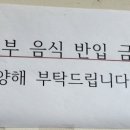 부 음식 반입 금
양해 부탁드립니다